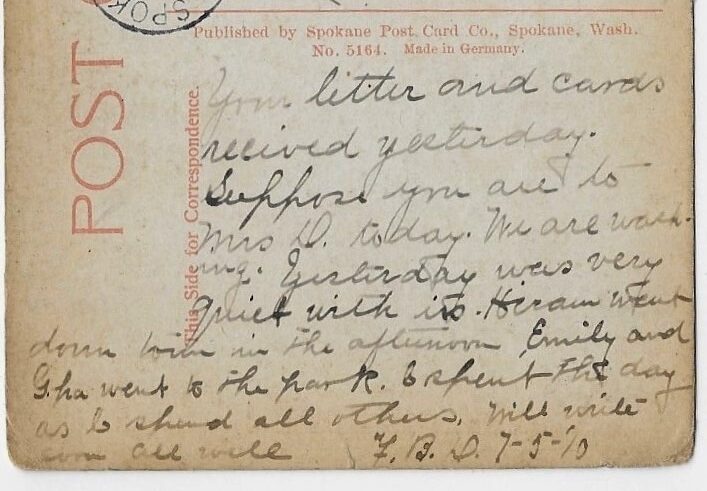 SPOK
POST
Published by Spokane Post Card Co., Spokane, Wash.
No. 5164. Made in Germany.
This Side for Correspondence.
Your letter and cards
recived yesterday.
Suppose you are to
Mrs D. today. We are wash-
ing. Yesterday was very
quiet with us. Hiram went
down town in the afternoon Emily and
G.pa went to the park. I spent the day
as I spend all others. Will write
soon all well F. B. D. 7-5-10